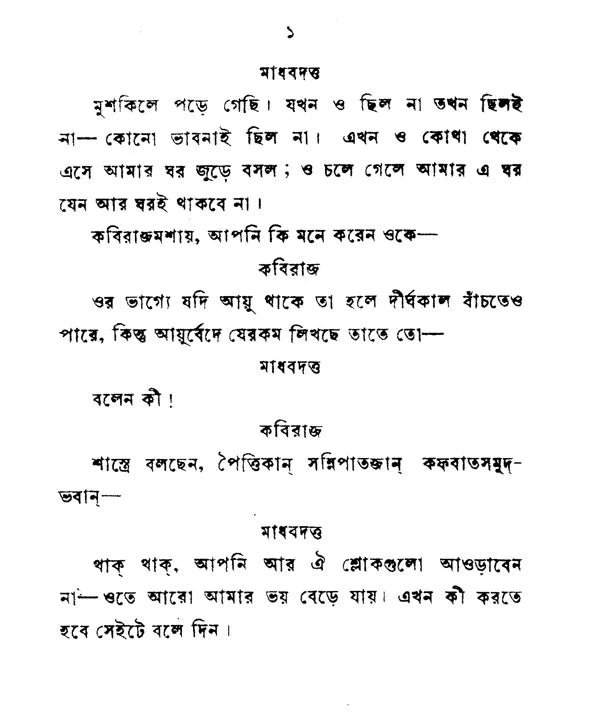 ১
মাধবদত্ত
মুশকিলে পড়ে গেছি। যখন ও ছিল না তখন ছিলই
না— কোনো ভাবনাই ছিল না। এখন ও কোথা থেকে
এসে আমার ঘর জুড়ে বসল ; ও চলে গেলে আমার এ ঘর
যেন আর ঘরই থাকবে না।
কবিরাজমশায়, আপনি কি মনে করেন ওকে—
কবিরাজ
ওর ভাগ্যে যদি আয়ু থাকে তা হলে দীর্ঘকাল বাঁচতেও
পারে, কিন্তু আয়ুর্বেদে যেরকম লিখছে তাতে তো—
মাধবদত্ত
বলেন কী !
কবিরাজ
শাস্ত্রে বলছেন, পৈত্তিকান্ সন্নিপাতজান্ কফবাতসমুদ্-
ভবান্—
মাধবদত্ত
থাক্ থাক্, আপনি আর ঐ শ্লোকগুলো আওড়াবেন
না—ওতে আরো আমার ভয় বেড়ে যায়। এখন কী করতে
হবে সেইটে বলে দিন।